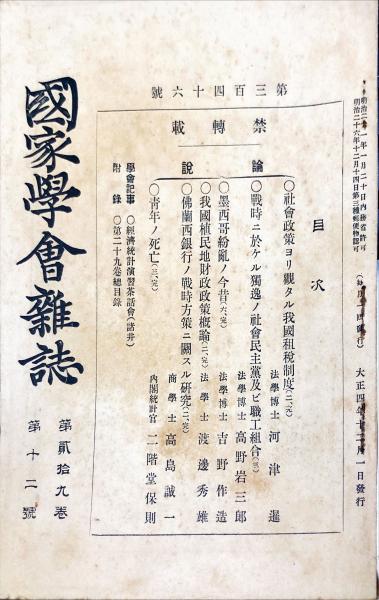 明治二十一年一月二十日內務省許可
明治二十六年十二月十四日第三種郵便物認可
大正四年十二月一日發行
第三百四十六號
禁轉載
目次
論說
○社會政策ヨリ觀タル我國租稅制度(二、完)
法學博士 河津暹
○戰時ニ於ケル獨逸ノ社會民主黨及ビ職工組合(三)
法學博士 高野岩三郎
○墨西哥紛亂ノ今昔(六、完)
法學博士 吉野作造
○我國植民地財政政策槪論(二、完)
法學士 渡邊秀雄
○佛蘭西銀行ノ戰時方策ニ關スル硏究(二、完)
商學士 高島誠一
○靑年ノ死亡(三、完)
內閣統計官 二階堂保則
學會記事 ○經濟統計演習茶話會(諸井)
附錄 ○第二十九卷總目錄
國家學會雜誌
第貳拾九卷
第十二號